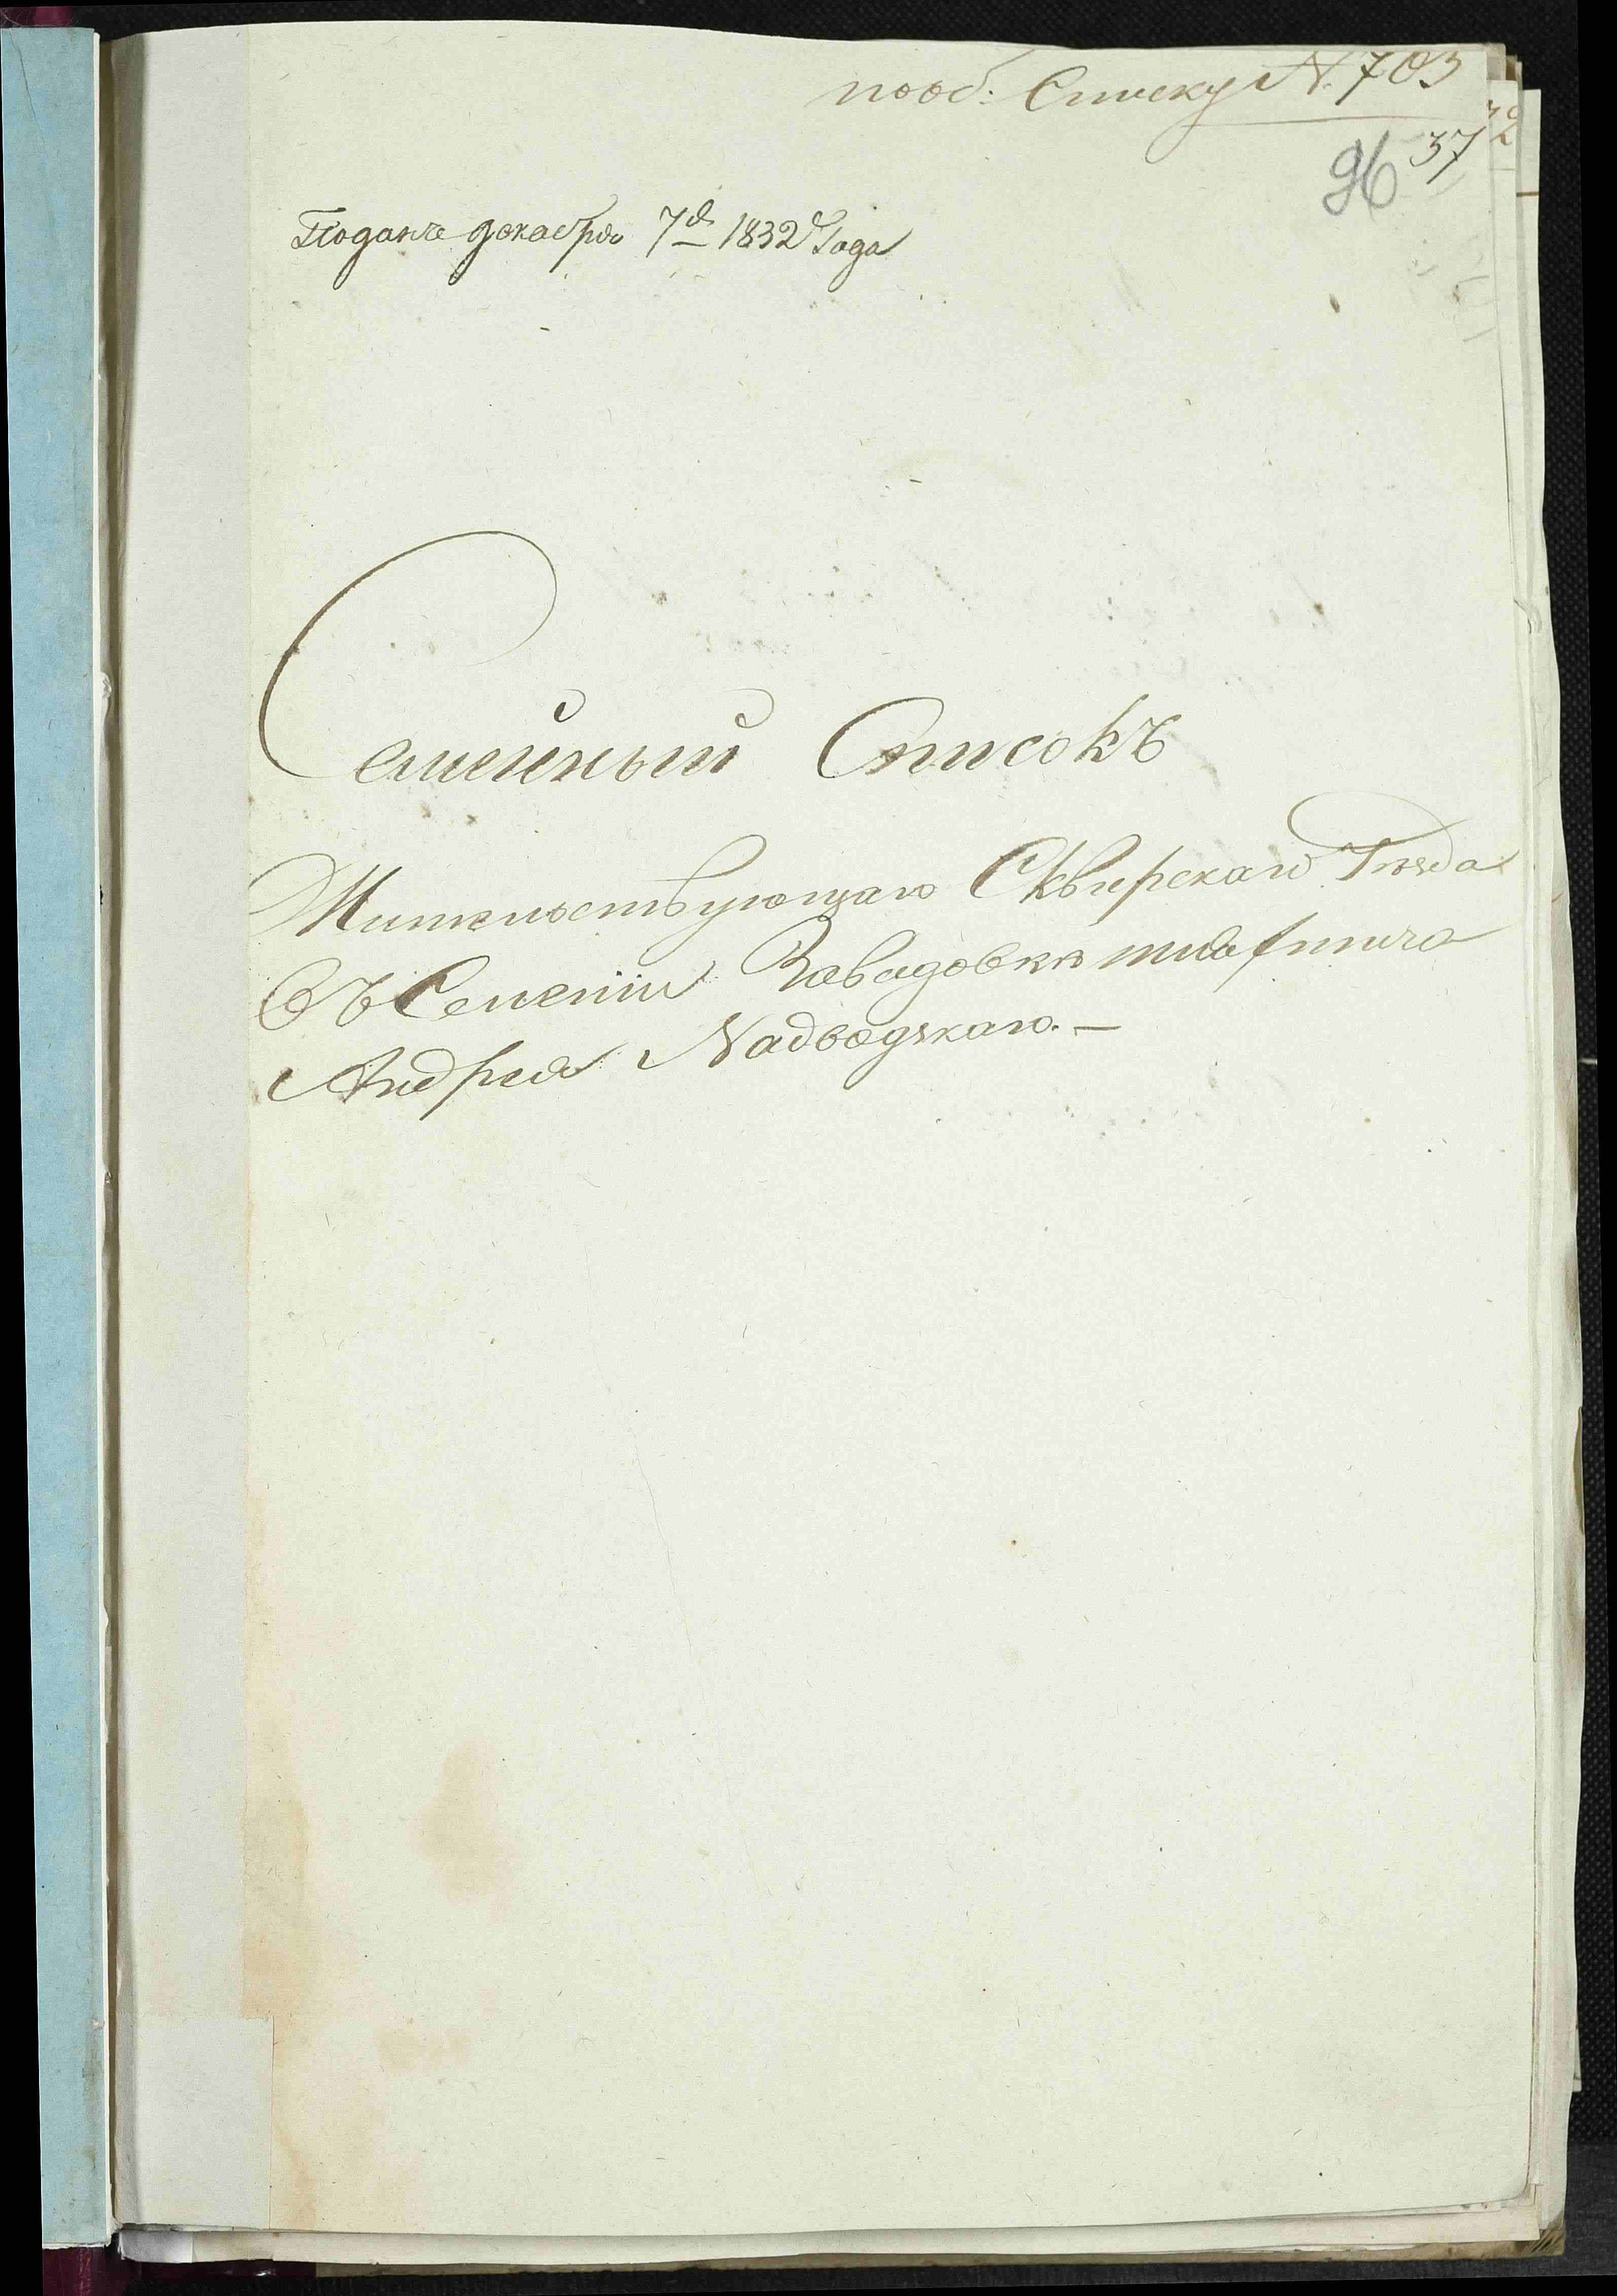 пооб: Списку N. 703
37
96
Поданъ декабря 7д 1832 Года
Семейный Списокъ
Жительствующаго Сквирскаго Уезда
Въ Селении Завадовки шляхтича
Андрея Надводзкаго. —